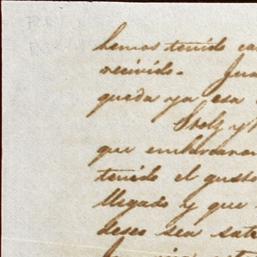 hemos tenido ca
recivido. Jua
queda ya esa
Stolz y
que embarcaron
tenido el gusto
llegado y que
deseo sea sate